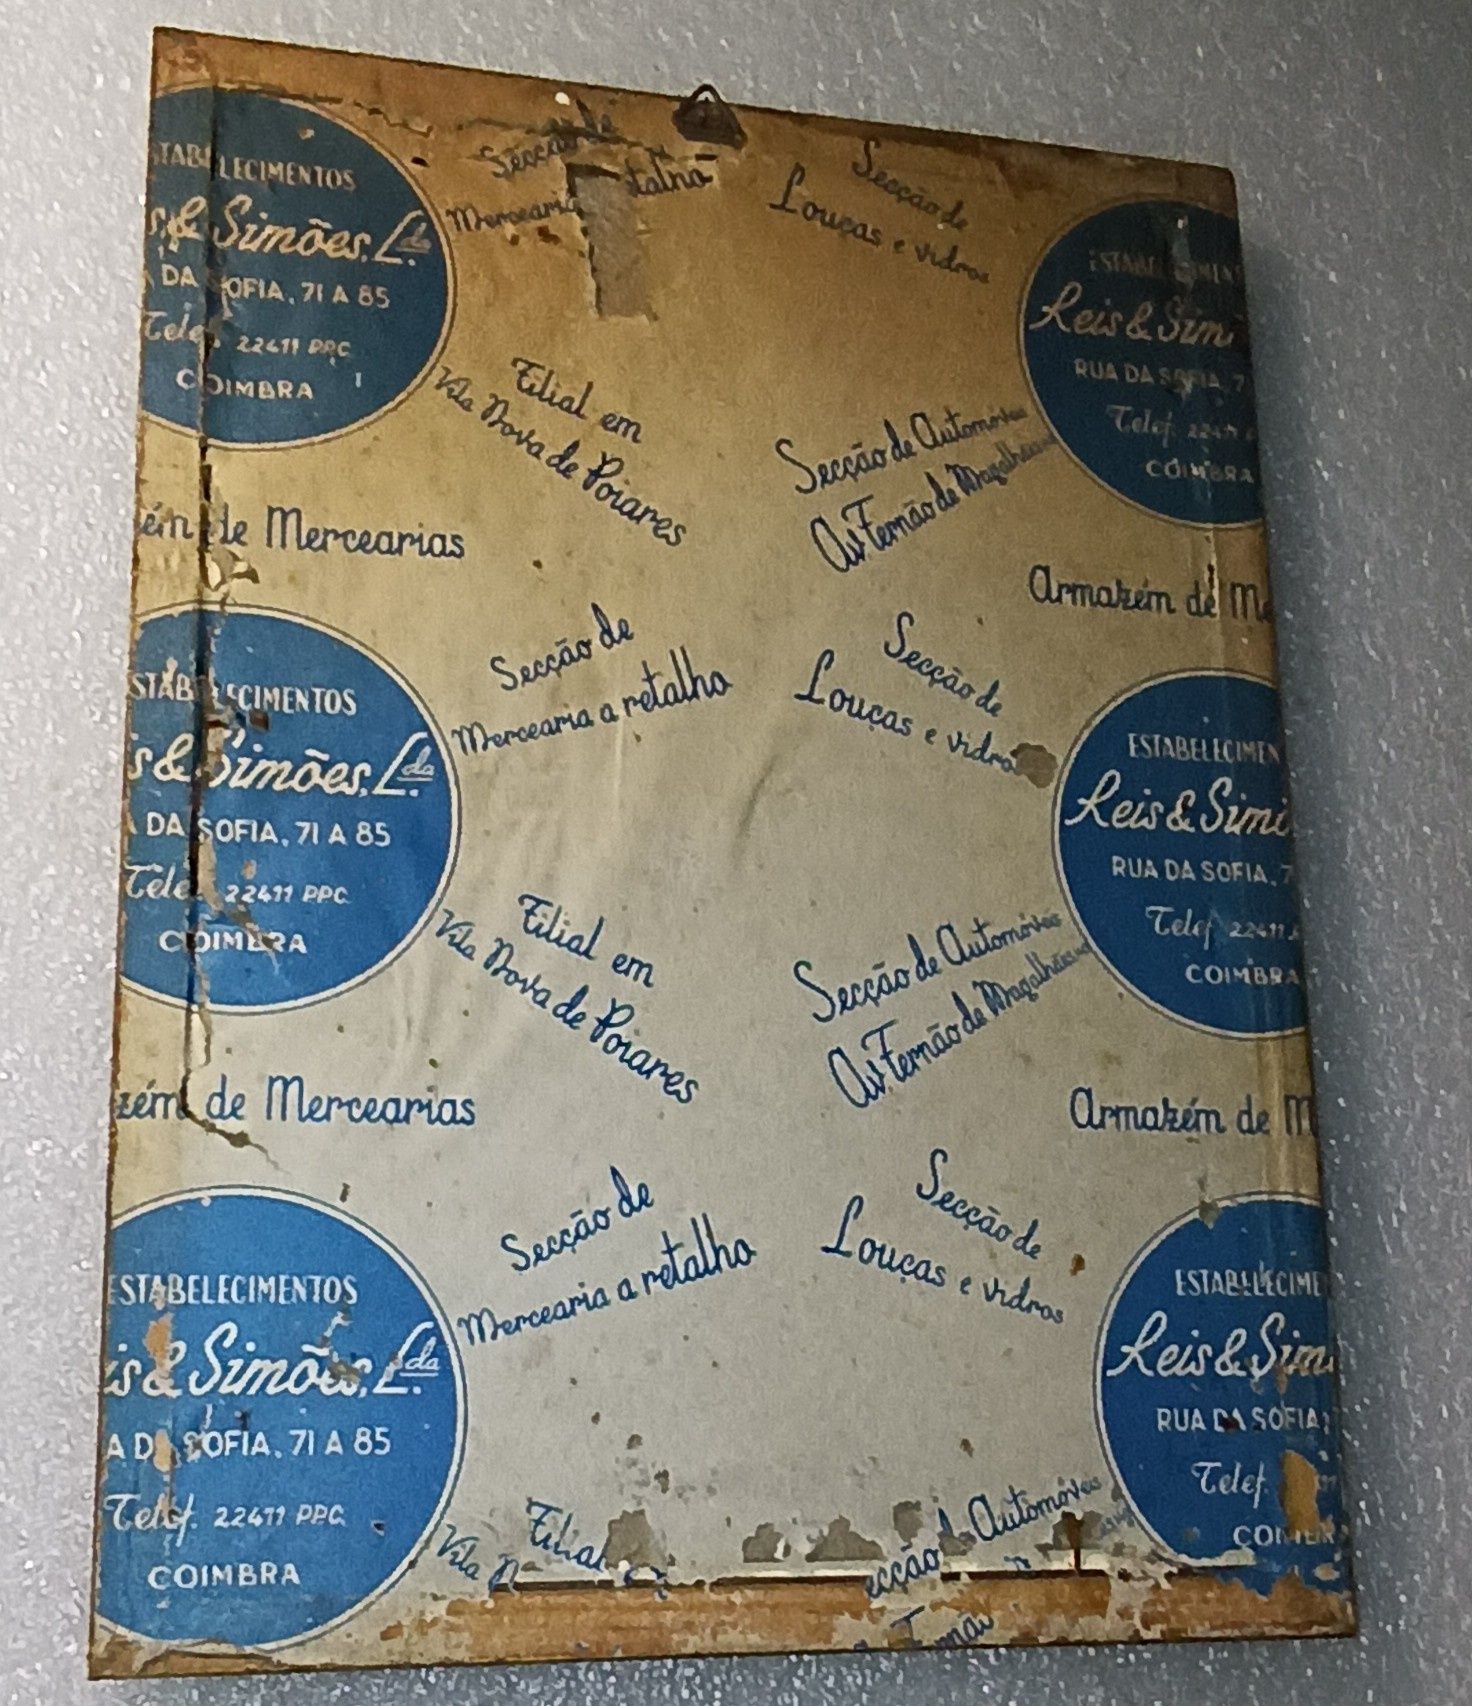 TABELECIMENTOS
s & Simões, Lda.
DA SOFIA, 71 A 85
Telef. 22411 PPC
COIMBRA
Secção de
Mercearia talho
Secção de
Louças e vidros
ESTABELECIMEN
Reis & Simõ
RUA DA SOFIA, 7
Telef. 22411
COIMBRA
Filial em
Vila Nova de Poiares
Secção de Automóveis
Av Fernão de Magalhães
ém de Mercearias
Armazém de Me
Secção de
Mercearia a retalho
Secção de
Louças e vidros
STABELECIMENTOS
s & Simões, Lda.
DA SOFIA, 71 A 85
Telef. 22411 PPC
COIMBRA
ESTABELECIMEN
Reis & Simõ
RUA DA SOFIA, 7
Telef 22411
COIMBRA
Filial em
Vila Nova de Poiares
Secção de Automóveis
Av Fernão de Magalhães
zém de Mercearias
Armazém de M
Secção de
Mercearia a retalho
Secção de
Louças e vidros
ESTABELECIMENTOS
is & Simões, Lda.
A DA SOFIA, 71 A 85
Telef. 22411 PPC
COIMBRA
ESTABELECIME
Reis & Sim
RUA DA SOFIA,
Telef.
COIMBRA
Filial
Vila N
ecção de Automóveis